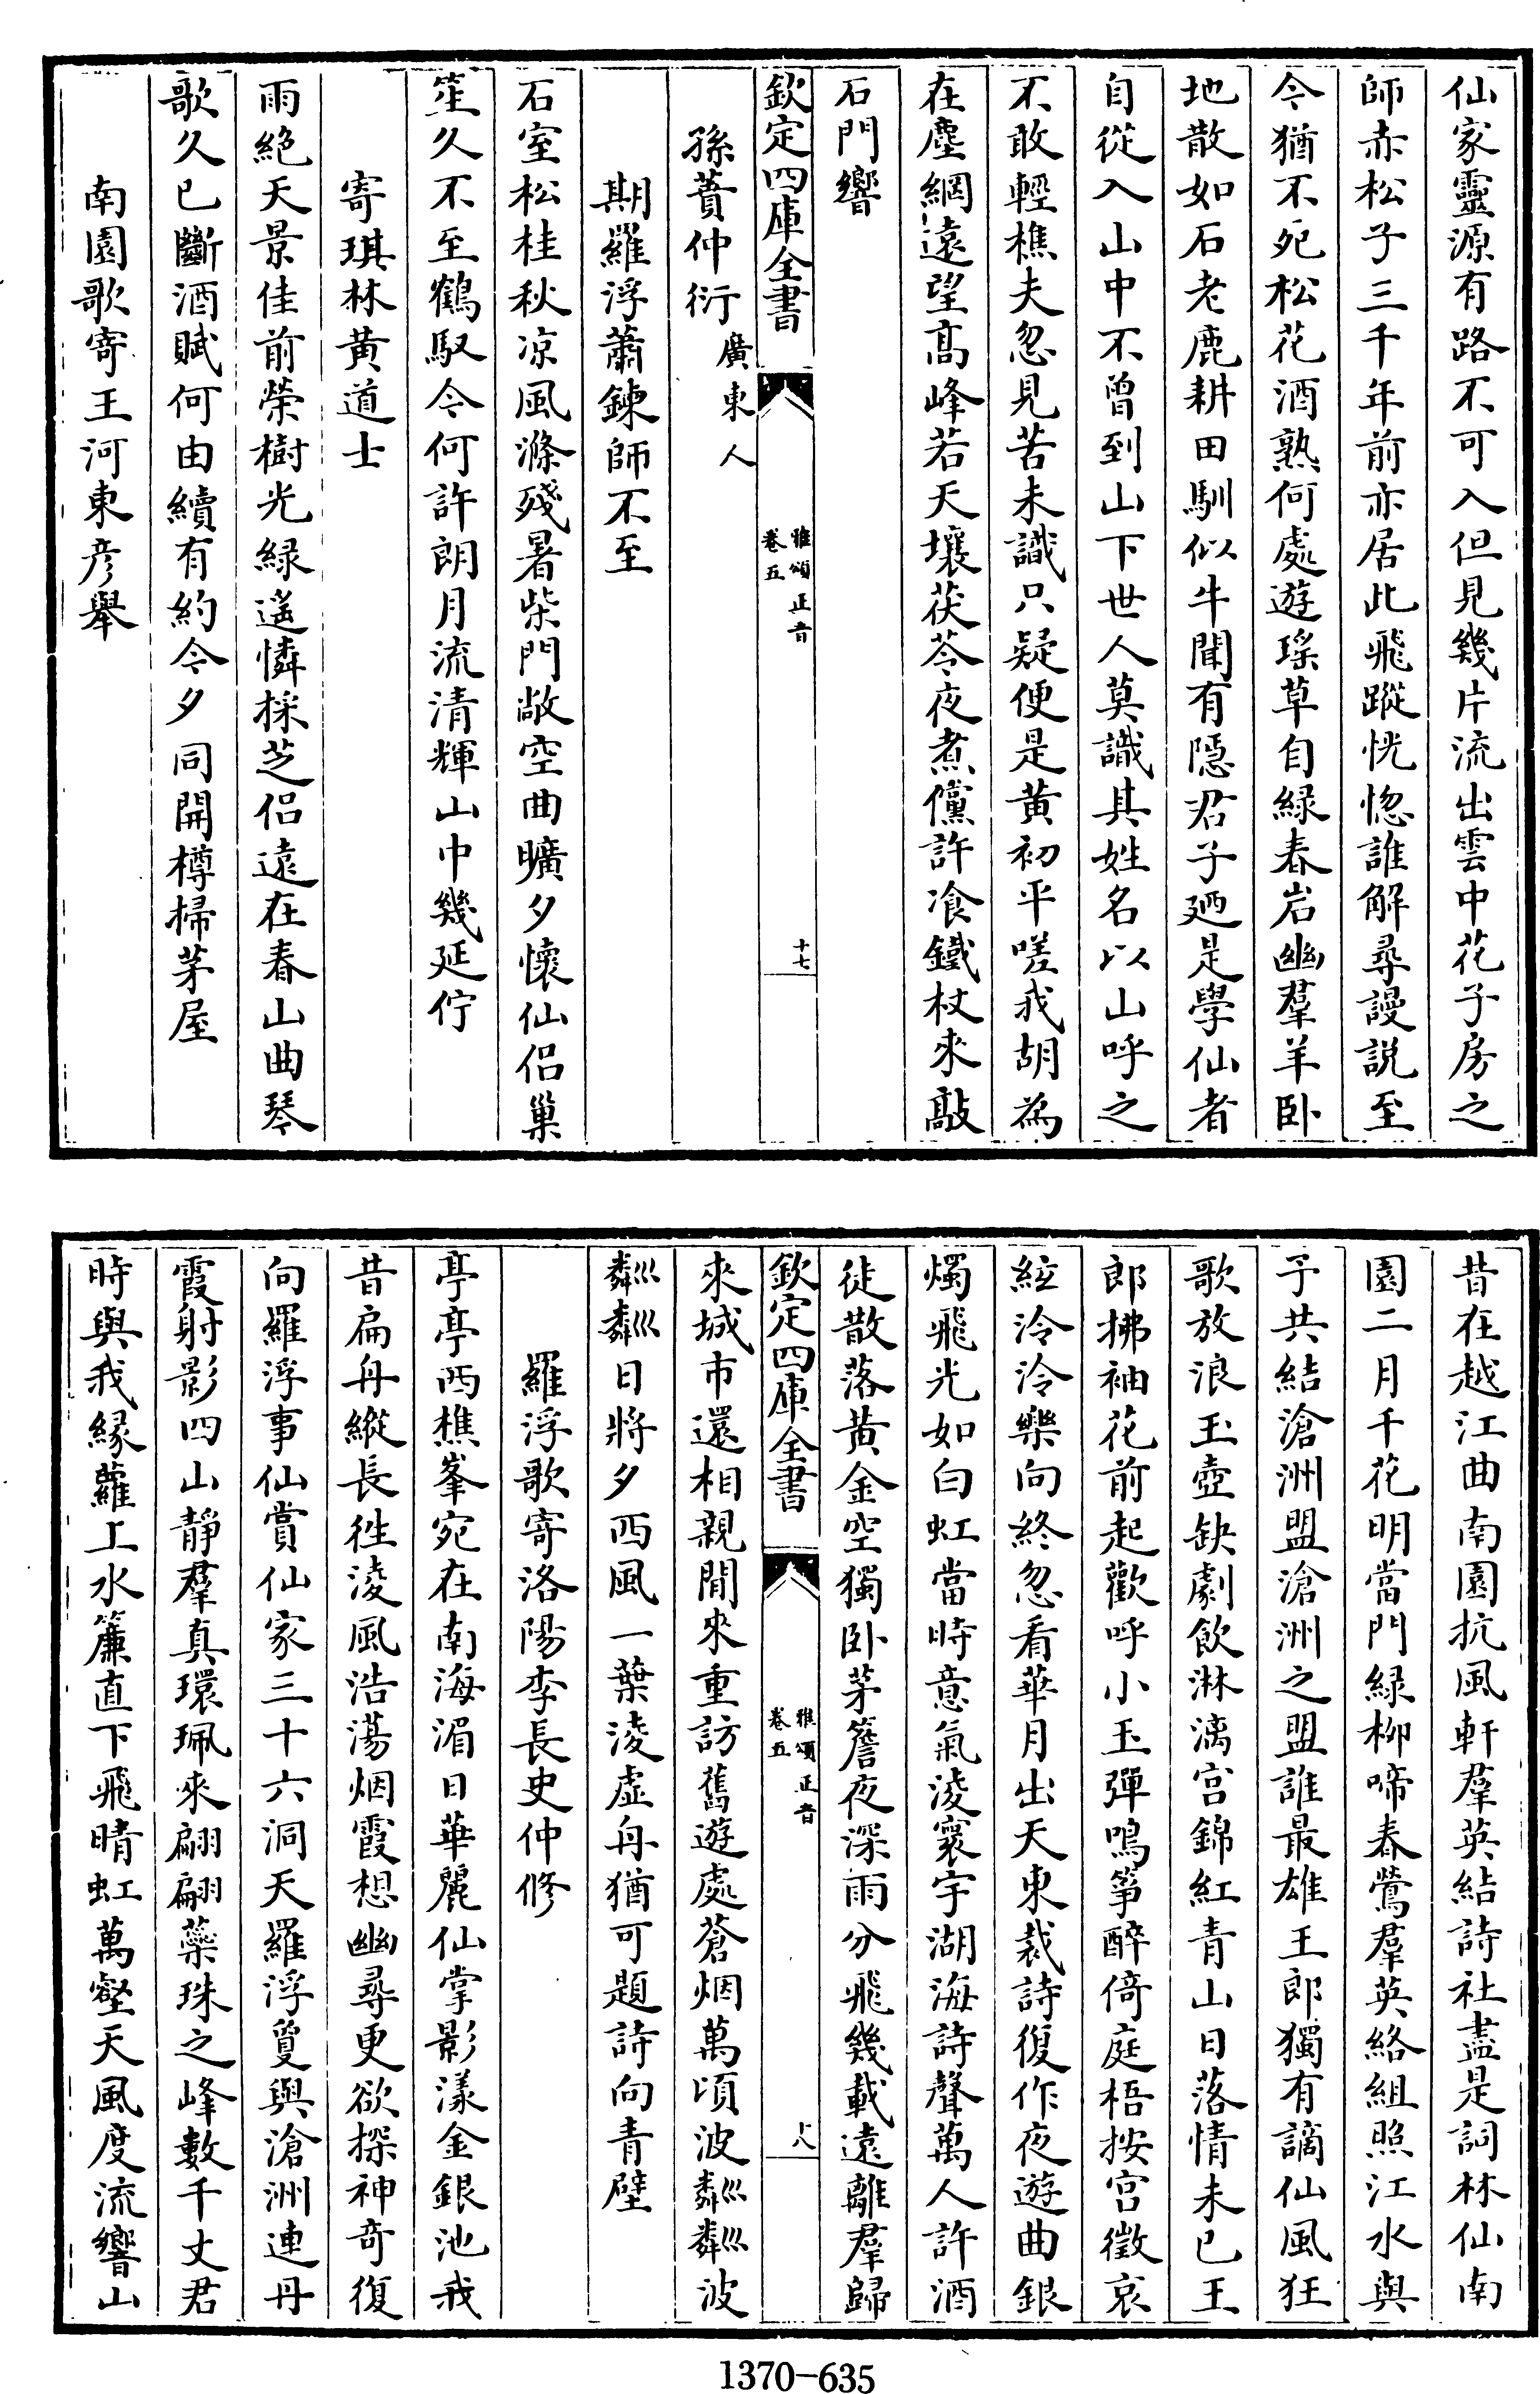 仙家靈源有路不可入但見幾片流出雲中花子房之
師赤松子三千年前亦居此飛蹤恍惚誰解尋謾説至
今猶不死松花酒熟何處遊瑤草自緑春岩幽羣羊卧
地散如石老鹿耕田馴似牛聞有隠君子廼是學仙者
自從入山中不曾到山下世人莫識其姓名以山呼之
不敢輕樵夫忽見苦未識只疑便是黄初平嗟我胡為
在塵網遠望髙峰若天壤茯苓夜煮儻許飡鐵杖來敲
石門響
欽定四庫全書
雅頌正音
卷五
十七
孫蕡仲衍廣東人
期羅浮蕭鍊師不至
石室松桂秋凉風滌殘暑柴門敞空曲曠夕懷仙侣巢
笙久不至鶴馭今何許朗月流清輝山中幾延佇
寄琪林黄道士
雨絶天景佳前榮樹光緑遙憐採芝侣遠在春山曲琴
歌久已斷酒賦何由續有約今夕同開樽掃茅屋
南園歌寄王河東彦舉
昔在越江曲南園抗風軒羣英結詩社盡是詞林仙南
園二月千花明當門緑柳啼春鶯羣英絡組照江水與
予共結滄洲盟滄洲之盟誰最雄王郎獨有謫仙風狂
歌放浪玉壺缺劇飲淋漓宫錦紅青山日落情未已王
郎拂袖花前起歡呼小玉彈鳴筝醉倚庭梧按宫徵哀
絃泠泠樂向終忽看華月出天東裁詩復作夜遊曲銀
燭飛光如白虹當時意氣淩寰宇湖海詩聲萬人許酒
徒散落黄金空獨卧茅簷夜深雨分飛幾載遠離羣歸
欽定四庫全書
雅頌正音
卷五
十八
來城市還相親閒來重訪舊遊處蒼烟萬頃波粼粼波
粼粼日將夕西風一葉淩虚舟猶可題詩向青壁
羅浮歌寄洛陽李長史仲修
亭亭西樵峯宛在南海湄日華麗仙掌影漾金銀池我
昔扁舟縱長徃淩風浩蕩烟霞想幽尋更欲探神奇復
向羅浮事仙賞仙家三十六洞天羅浮夐與滄洲連丹
霞射影四山靜羣真環珮來翩翩蘂珠之峰數千丈君
時與我緣蘿上水簾直下飛晴虹萬壑天風度流響山
1370-635